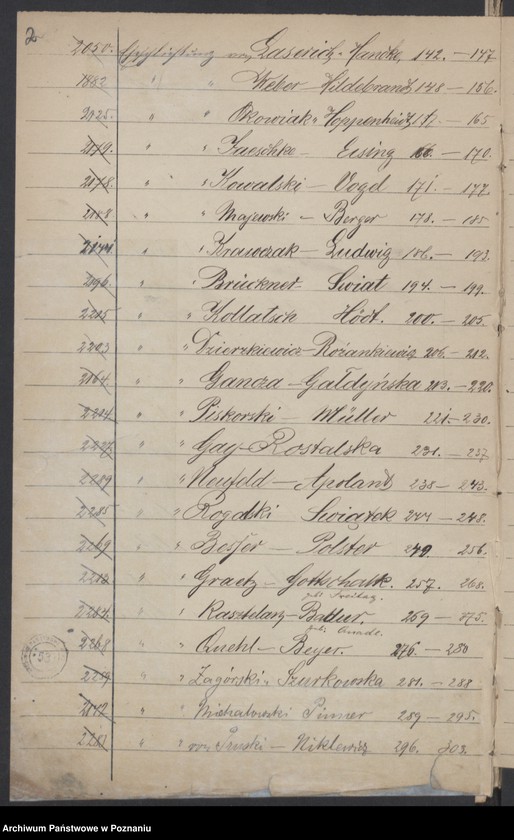 2
2050. Eheschliessung von Gaserich - Hancke, 142. — 147
1882 " " Weber - Hildebrandt 148 — 156.
2125. " " Okowiak " Hoppenheidt — 165
2179. " " Jaeschke — Eising — 170.
2178. " " Kowalski — Vogd 171. — 177
2188 " " Majewski — Berger 178. — 185
" " Krawczak — Ludwig 186. — 193.
2196. " " Brückner — Swiat 194. — 199.
2215 " " Kollatsch Höd. 200. — 205.
2293 " " Dzierzkiewicz - Rożankiewicz 206. — 212.
2164. " " Gancza — Gałdyńska 213. — 220.
2214. " " Piskorski — Müller 221. — 230.
2227. " " Gay - Rostalska 231. — 237
2289 " " Neufeld — Apolant 238 — 243.
2285 " " Rogalski Swiątek 244 — 248.
2269 " " Besser — Polster 249. 256.
" " Graetz — Gottschalk. 257. 268.
gb. Freitag.
2284. " " Kasztelanz - Battur. 259 — 275.
2268 " " Quehl - Beyer. 276. — 280
2259 " " Zagórski " Szurkowska 281. — 288
2142 " " Michalowski Pinner 289 — 295.
2281 " " von Pruski — Niklewicz 296. 302.
Archiwum Państwowe w Poznaniu